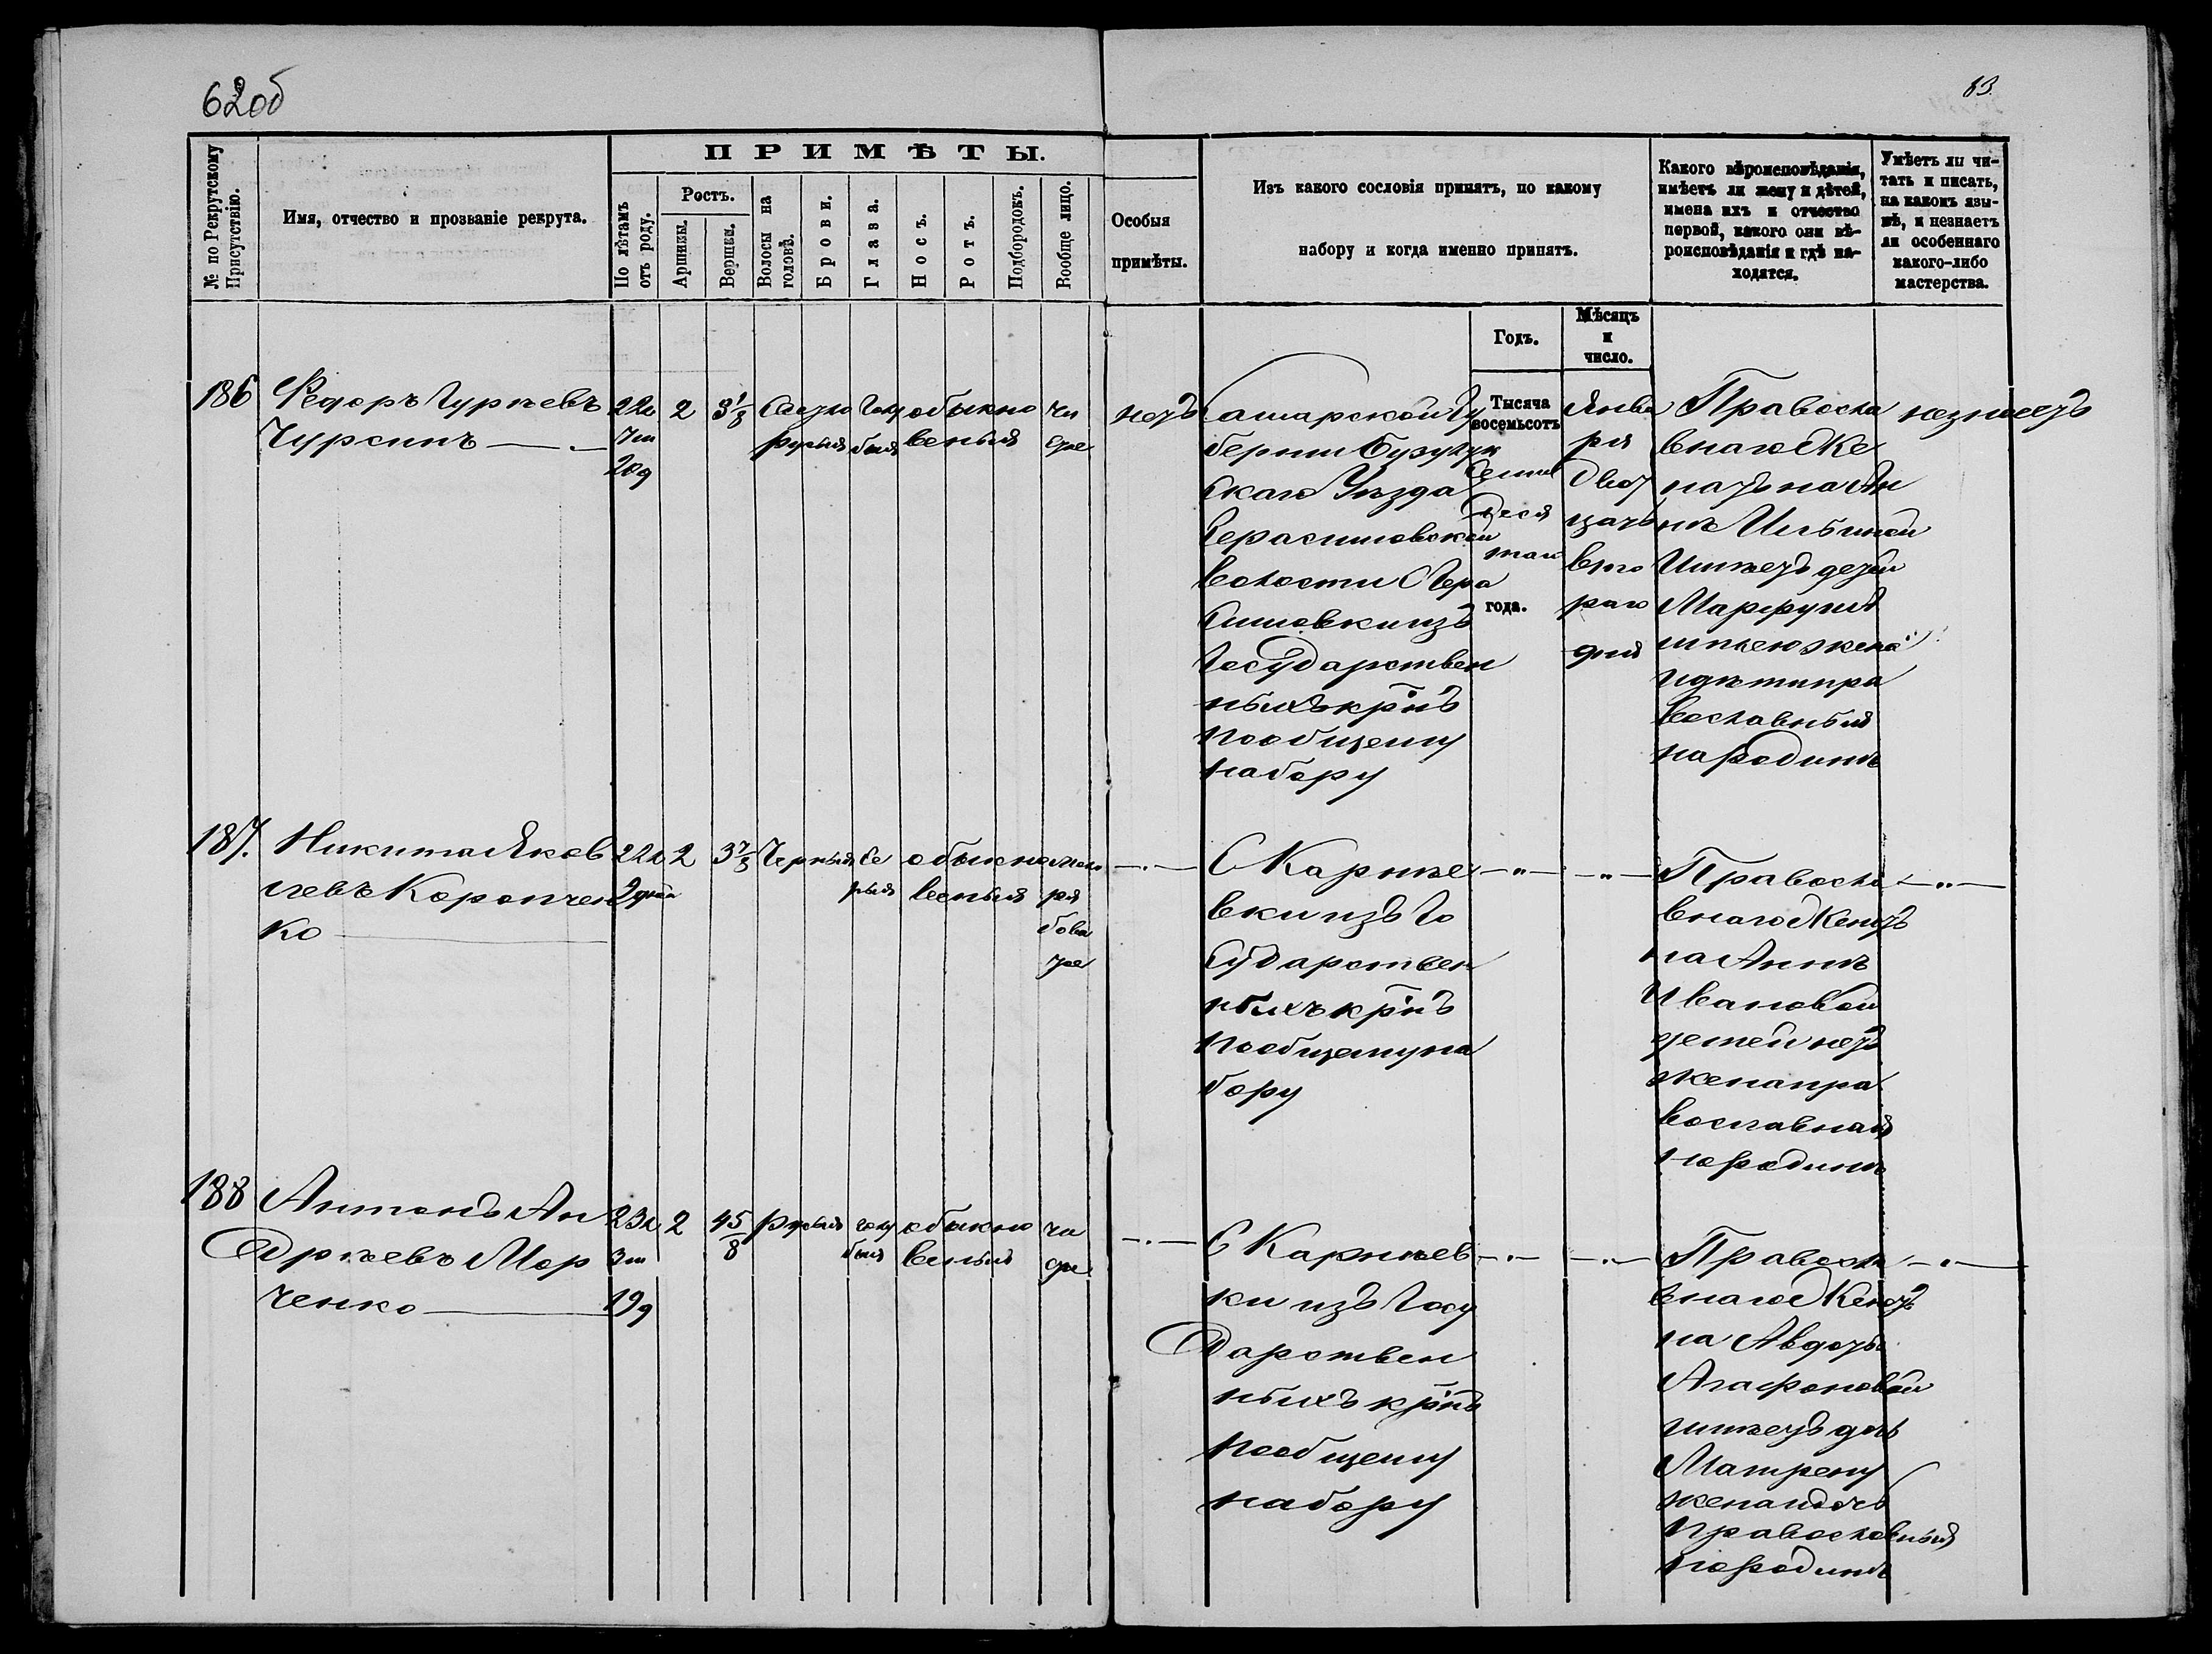 62об
63.
№ по Рекрутскому Присутствію.
Имя, отчество и прозваніе рекрута.
ПРИМѢТЫ.
По лѣтамъ отъ роду.
Ростъ.
Аршины.
Вершки.
Волосы на головѣ.
Брови.
Глаза.
Носъ.
Ротъ.
Подбородокъ.
Вообще лицо.
Особыя
примѣты.
Изъ какого сословія принятъ, по какому
набору и когда именно принятъ.
Годъ.
Мѣсяцъ
и
число.
Какого вѣроисповѣданія,
имѣетъ ли жену и дѣтей,
имена ихъ и отчество
первой, какого они вѣ-
роисповѣданія и гдѣ на-
ходятся.
Умѣетъ ли чи-
тать и писать,
на какомъ язы-
кѣ, и незнаетъ
ли особеннаго
какого-либо
мастерства.
186
Федоръ Гурьевъ
Чурсинъ
22л
7м
20д
2
3 1/8
Свѣтло
русыя
голу
быя
обыкно
веныя
чи
стое
нетъ
Самарской Гу
берніи Бузулук
скаго Уѣзда
Герасимовской
волости С Гера
симовки изъ
Государствен
ныхъ крнъ
по общему
набору
Тысяча
восемьсотъ
Семи
деся
таго
года.
Янва
ря
Двад
цать
вто
раго
дня
Правосла
внаго Же
натъ на Ан
нѣ Ильиной
Имѣетъ детей
Марфу
жена
и дѣти пра
вославныя
на родинѣ
неумѣетъ
187.
Никита Яков
левъ Коропчен
ко
22л
2дней
2
3 7/8
Черныя
Се
рыя
обыкно
веныя
ря
бова
тое
С Карпѣе
вки изъ Го
сударствен
ныхъ крнъ
по общему на
бору
Правосла
внаго Женатъ
на Аннѣ
Ивановой
детей нетъ
жена пра
вославная
на родинѣ
188
Антонъ Ан
Дреевъ Мар
ченко
23л
3м
19д
2
4 5/8
русыя
голу
быя
обыкно
веныя
чи
стое
С Карпѣев
ки изъ Госу
Дарствен
ныхъ крнъ
по общему
набору
Правосла
внаго Женатъ
на Авдотьи
Агафоновой
имѣетъ дочь
Матрену
жена и дочь
православныя
на родинѣ